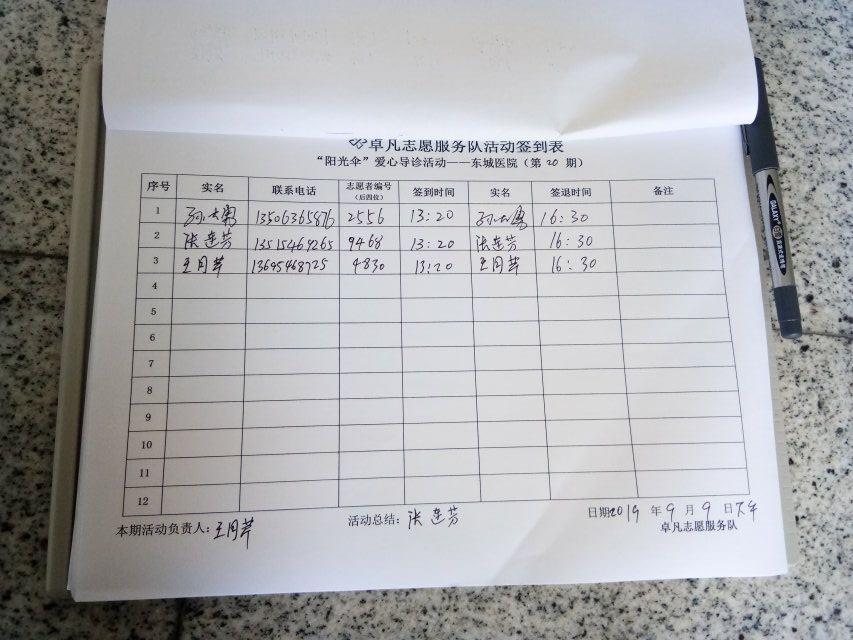 卓凡志愿服务队活动签到表
“阳光伞”爱心导诊活动——东城医院（第 20 期）
序号 实名 联系电话 志愿者编号（后四位） 签到时间 实名 签退时间 备注
1 13506365876 2556 13:20 16:30
2 张莲芳 13515469265 9468 13:20 张莲芳 16:30
3 王月芹 13695468725 4830 13:20 王月芹 16:30
4
5
6
7
8
9
10
11
12
本期活动负责人：王月芹 活动总结：张莲芳 日期2019 年 9 月 9 日下午
卓凡志愿服务队
GALAXY